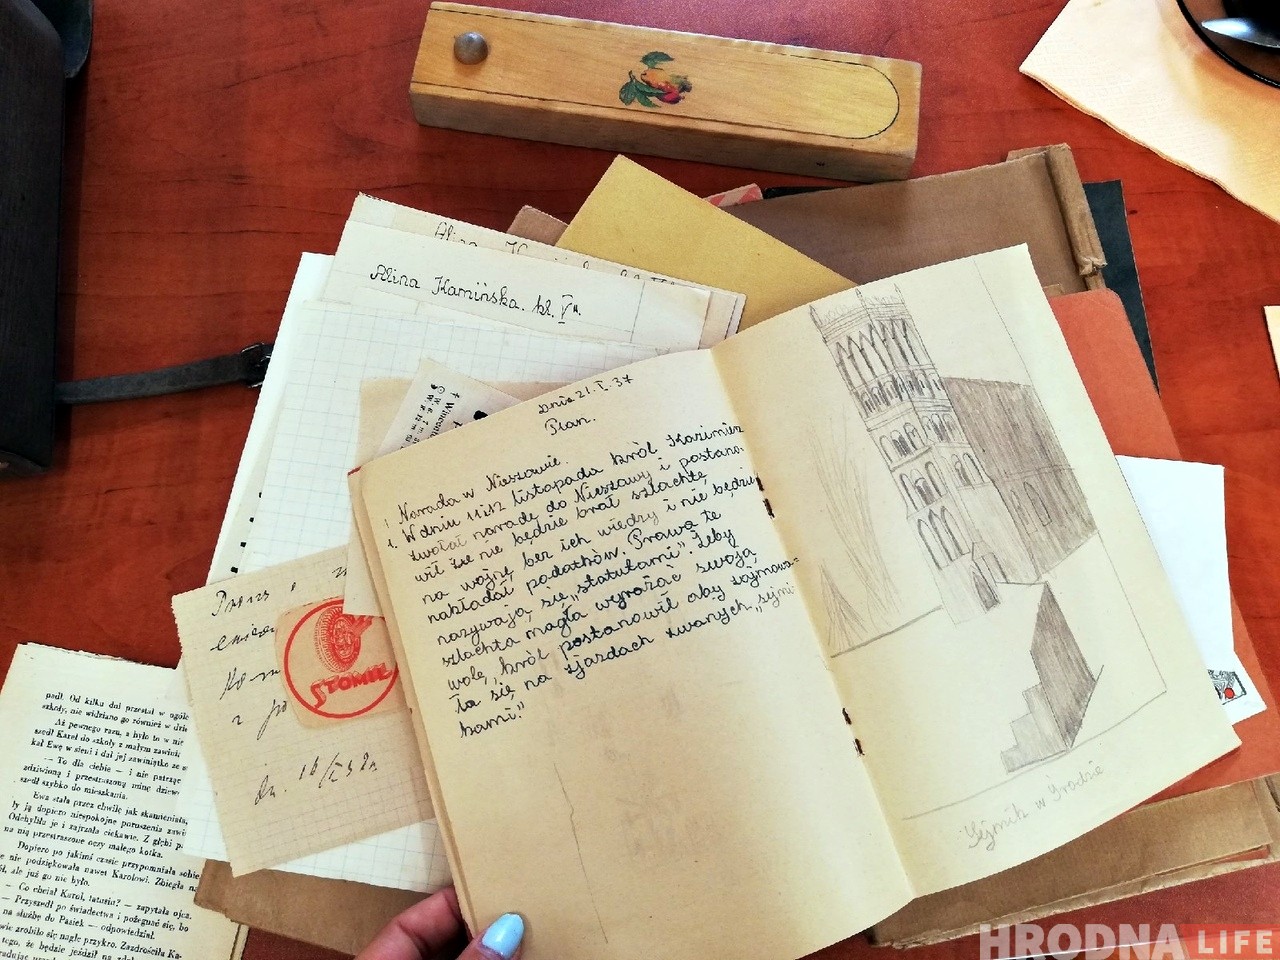 Alina K
Alina Kamińska. kl. V
Dnia 21.I.37
Plan.
Narada w Nieszawie.
1. W dniu 11 i 12 listopada król Kazimierz
zwołał naradę do Nieszawy i postano-
wił że nie będzie brał szlachtę
na wojnę bez ich wiedzy i nie będzie
nakładał podatków. Prawa te
nazywają się „statutami". Żeby
szlachta mogła wyrażać swoją
wolę, król postanowił aby zajmowa=
ła się na zjazdach zwanych „sejmi-
kami."
Sejmik w Grodzie
STOMIL
padł. Od kilku dni przestał w ogóle
szkoły, nie widziano go również w dzie
Aż pewnego razu, a było to w nie
szedł Karol do szkoły z małym zawini
kał Ewę w sieni i dał jej zawiniątko ze s
— To dla ciebie — i nie patrząc
zdziwioną i przestraszoną minę dziewc
szedł szybko do mieszkania.
Ewa stała przez chwilę jak skamieniała,
ły ją dopiero niespokojne poruszenia zawi
Odchyliła je i zajrzała ciekawie. Z głębi p
na nią przestraszone oczy małego kotka.
Dopiero po jakimś czasie przypomniała sobie
że nie podziękowała nawet Karolowi. Zbiegła na
ół, ale już go nie było.
— Co chciał Karol, tatusiu? — zapytała ojca.
— Przyszedł po świadectwa i pożegnać się, bo
na służbę do Pasiek — odpowiedział.
wie zrobiło się nagle przykro. Zazdrościła Ka-
tego, że będzie jeździł na
HRODNA LIFE